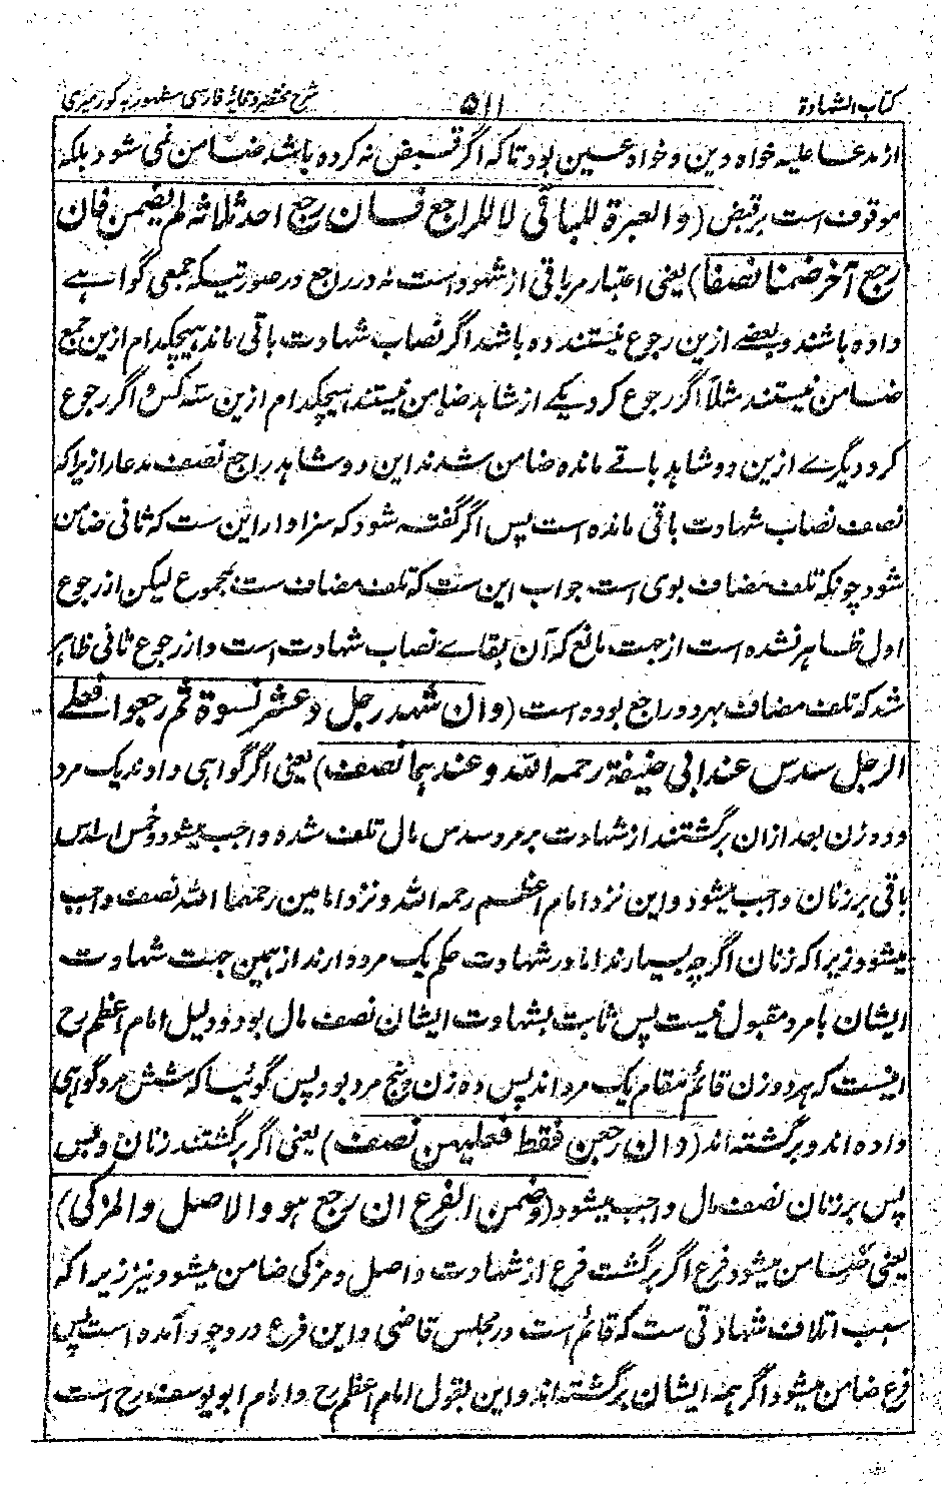 کتاب الشهادة ۵۱۱ شرح مختصر وقایهٔ فارسی مشهور به کورمیری
از مدعا علیه خواه دین و خواه عین بود تا که اگر قبض نه کرده باشد ضامن نمی شود بلکه
موقوف است بر قبض (والعبرة للباقی لا للراجع فان رجع احد ثلاثة لم یضمن فان
رجع آخر ضمنا نصفا) یعنی اعتبار مر باقی از شهود است نه در راجع در صورتیکه جمعی گواهے
داده باشند و بعضے ازین رجوع نیستند ده باشد اگر نصاب شهادت باقی ماند هیچکدام ازین جمع
ضامن نیستند مثلاً اگر رجوع کرد یکے از شاهد ضامن نیستند هیچکدام ازین سه کس و اگر رجوع
کرد دیگرے ازین دو شاهد باقے مانده ضامن شدند این دو شاهد راجع نصف مدعا را زیرا که
نصف نصاب شهادت باقی مانده است پس اگر گفته شود که سزاوار این ست که ثانی ضامن
شود چونکه تلف مضاف بوی است جواب این ست که تلف مضاف ست بمجموع لیکن از رجوع
اول ظاهر نشده است از جهت مانع که آن بقاے نصاب شهادت است و از رجوع ثانی ظاهر
شد که تلف مضاف بهر دو راجع بوده است (وان شهد رجل و عشر نسوة ثم رجعوا فعلے
الرجل سدس عند ابی حنیفة رحمه الله و عندهما نصف) یعنی اگر گواهی دادند یک مرد
و ده زن بعد ازان برگشتند از شهادت بر مرد سدس مال تلف شده واجب میشود و خمس اسداس
باقی بر زنان واجب میشود و این نزد امام اعظم رحمه الله و نزد امامین رحمهما الله نصف واجب
میشود زیرا که زنان اگر چه بسیارند اما در شهادت حکم یک مرد دارند از همین جهت شهادت
ایشان با مرد مقبول نیست پس ثابت بشهادت ایشان نصف مال بود و دلیل امام اعظم رح
اینست که هر دو زن قائم مقام یک مرد اند پس ده زن پنج مرد بود پس گوئیا که شش مرد گواهی
داده اند و برگشته اند (وان رجعن فقط فعلیهن نصف) یعنی اگر برگشتند زنان و بس
پس بر زنان نصف مال واجب میشود (وضمن الفرع ان رجع هو والاصل والمزکی)
یعنی ضامن میشود فرع اگر برگشت فرع از شهادت و اصل و مزکی ضامن میشود نیز زیرا که
سبب اتلاف شهادتی ست که قائم است در مجلس قاضی و این فرع در وجود آمده است پس
فرع ضامن میشود اگر همه ایشان برگشته اند و این بقول امام اعظم رح و امام ابو یوسف رح است